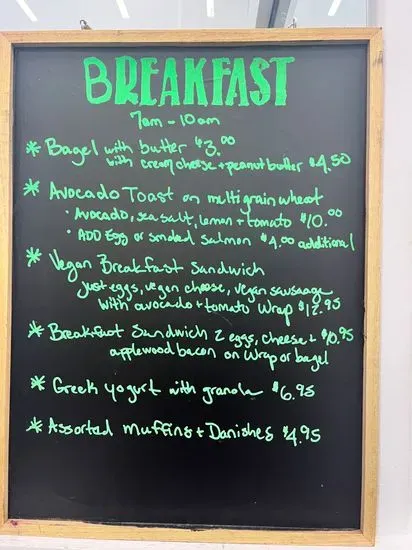 BREAKFAST
7am - 10am
* Bagel with butter $3.00
with cream cheese + peanut butter $4.50
* Avocado Toast on multigrain wheat
• Avocado, sea salt, lemon + tomato $10.00
• ADD Egg or smoked salmon $4.00 additional
* Vegan Breakfast Sandwich
Just eggs, vegan cheese, vegan sausage
with avocado + tomato Wrap $12.95
* Breakfast Sandwich 2 eggs, cheese + $10.95
applewood bacon on Wrap or bagel
* Greek yogurt with granola $6.95
* Assorted Muffins + Danishes $4.95